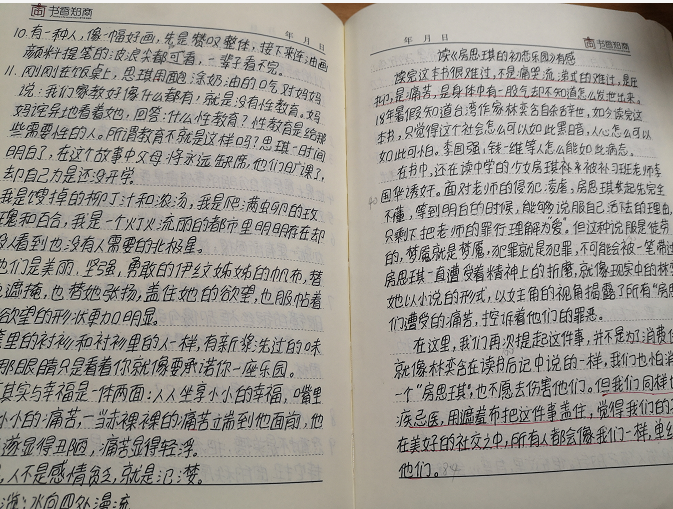 书香知商
年 月 日
10.有一种人,像一幅好画,先是赞叹整体,接下来连油画
颜料提笔的波浪尖都可看,一辈子看不完。
11.刚刚在饭桌上,思琪用面包涂奶油的口气对妈妈
说:我们家教好像什么都有,就是没有性教育。妈
妈诧异地看着她,回答:什么性教育?性教育是给那
些需要性的人。所谓教育不就是这样吗?思琪一时间
明白了,在这个故事中父母将永远缺席,他们旷课了,
却自己为是还没开学。
我是馊掉的柳丁汁和浓汤,我是爬满虫卵的玫
瑰和百合,我是一个灯火流丽的都市里明明存在却
人看到也没有人需要的北极星。
他们是美丽、坚强,勇敢的伊纹姊姊的帆布,替
遮掩,也替她张扬,盖住她的欲望,也服帖着
欲望的形状更加明显。
里的衬衫和衬衫里的人一样,有新浆洗过的味
用那眼睛只是看着你就像要承诺你一座乐园。
其实与幸福是一体两面:人人坐享小小的幸福,嘴里
小小的痛苦,一当赤裸裸的痛苦端到他面前,他
遂显得丑陋,痛苦显得轻浮。
,人不是感情贫乏,就是泛滥。
:水向四外漫流
年 月 日
书香知商
读《房思琪的初恋乐园》有感
读完这本书很难过,不是痛哭流涕式的难过,是压
抑,是痛苦,是身体中有一股气却不知道怎么发泄出来。
18年暑假知道台湾作家林奕含自杀去世,如今读完这
本书,只觉得这个社会怎么可以如此黑暗,人心怎么可以
如此可怕。李国强,钱一维等人怎么能如此病态。
在书中,还在读中学的少女房思琪被补习班老师李
国华诱奸。面对老师的侵犯凌虐,房思琪先完全
不懂,等到明白的时候,能够说服自己活法的理由,
只剩下把老师的罪行理解为“爱”。但这种说服是徒劳
的,梦魇就是梦魇,犯罪就是犯罪,不可能会被一笔带过
房思琪一直遭受着精神上的折磨,就像现实中的林奕
她以小说的形式,以女主角的视角揭露了所有“房思
们遭受的痛苦,控诉着他们的罪恶。
在这里,我们再次提起这件事,并不是为了消费
就像林奕含在读书后记中说的一样,我们也怕消
一个“房思琪”,也不愿去伤害他们。但我们同样
疾忌医,用遮羞布把这件事盖住,觉得我们的
在美好的社交之中,所有人都会像我们一样,单纯
他们。84